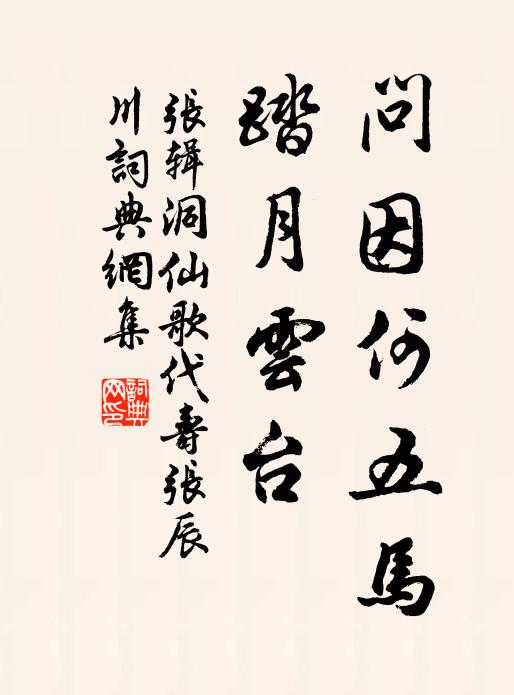 問因何五馬
踏月雲台
張輯洞仙歌代壽張辰
川詞典網集
詞典
网印